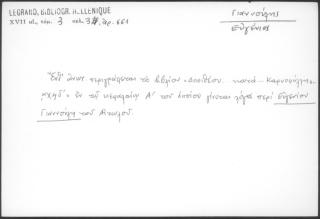 LEGRAND, BIBLIOGR. HELLÉNIQUE
XVII αἰ., τόμ. 3 σελ. 3, ἀρ. 661
Γιαννούλης
Εὐγένιος
Ἐδῶ ἄνω περιγράφεται τὸ βιβλίον «Δοσιθέου κατὰ Καρυοφύλλη»
ἐν τῷ κεφαλαίῳ Α' τοῦ ὁποίου γίνεται λόγος περὶ Εὐγενίου
Γιαννούλη τοῦ Αἰτωλοῦ.